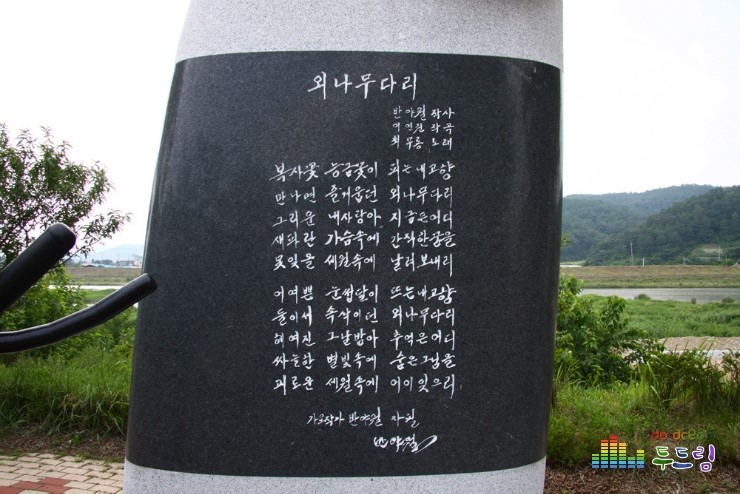 외나무다리
반야월 작사
이인권 작곡
최무룡 노래
복사꽃 능금꽃이 피는내고향
만나면 즐거웁던 외나무다리
그리운 내사랑아 지금은어디
새파란 가슴속에 간직한꿈을
못잊을 세월속에 날려보내리
어여쁜 눈썹달이 뜨는내고향
둘이서 속삭이던 외나무다리
헤여진 그날밤아 추억은어디
싸늘한 별빛속에 숨은그님을
괴로운 세월속에 어이잊으리
가요작가 반야월 자필
반야월
do dream
두드림